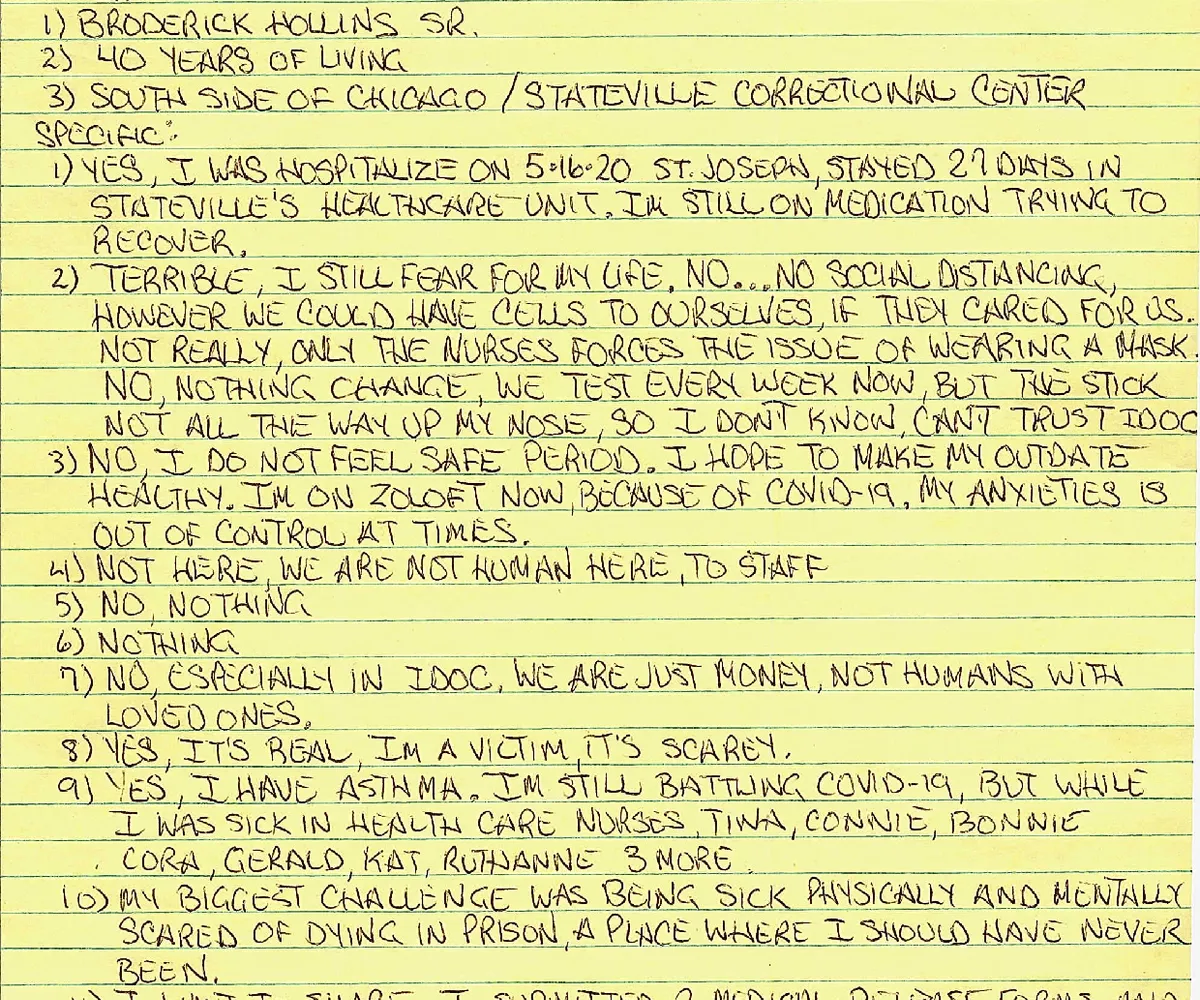 1) BRODERICK HOLLINS SR.
2) 40 YEARS OF LIVING
3) SOUTH SIDE OF CHICAGO / STATEVILLE CORRECTIONAL CENTER
SPECIFIC:
1) YES, I WAS HOSPITALIZE ON 5-16-20 ST. JOSEPH, STAYED 27 DAYS IN
STATEVILLE'S HEALTHCARE UNIT. IM STILL ON MEDICATION TRYING TO
RECOVER.
2) TERRIBLE, I STILL FEAR FOR MY LIFE. NO...NO SOCIAL DISTANCING,
HOWEVER WE COULD HAVE CELLS TO OURSELVES, IF THEY CARED FOR US.
NOT REALLY, ONLY THE NURSES FORCES THE ISSUE OF WEARING A MASK.
NO, NOTHING CHANGE, WE TEST EVERY WEEK NOW, BUT THE STICK
NOT ALL THE WAY UP MY NOSE, SO I DON'T KNOW, CAN'T TRUST IDOC
3) NO, I DO NOT FEEL SAFE PERIOD. I HOPE TO MAKE MY OUTDATE
HEALTHY. IM ON ZOLOFT NOW, BECAUSE OF COVID-19. MY ANXIETIES IS
OUT OF CONTROL AT TIMES.
4) NOT HERE, WE ARE NOT HUMAN HERE, TO STAFF
5) NO, NOTHING
6) NOTHING
7) NO, ESPECIALLY IN IDOC. WE ARE JUST MONEY, NOT HUMANS WITH
LOVED ONES.
8) YES, IT'S REAL, IM A VICTIM, IT'S SCAREY.
9) YES, I HAVE ASTHMA. IM STILL BATTLING COVID-19, BUT WHILE
I WAS SICK IN HEALTH CARE NURSES, TINA, CONNIE, BONNIE
CORA, GERALD, KAT, RUTHANNE 3 MORE
10) MY BIGGEST CHALLENGE WAS BEING SICK PHYSICALLY AND MENTALLY
SCARED OF DYING IN PRISON, A PLACE WHERE I SHOULD HAVE NEVER
BEEN.